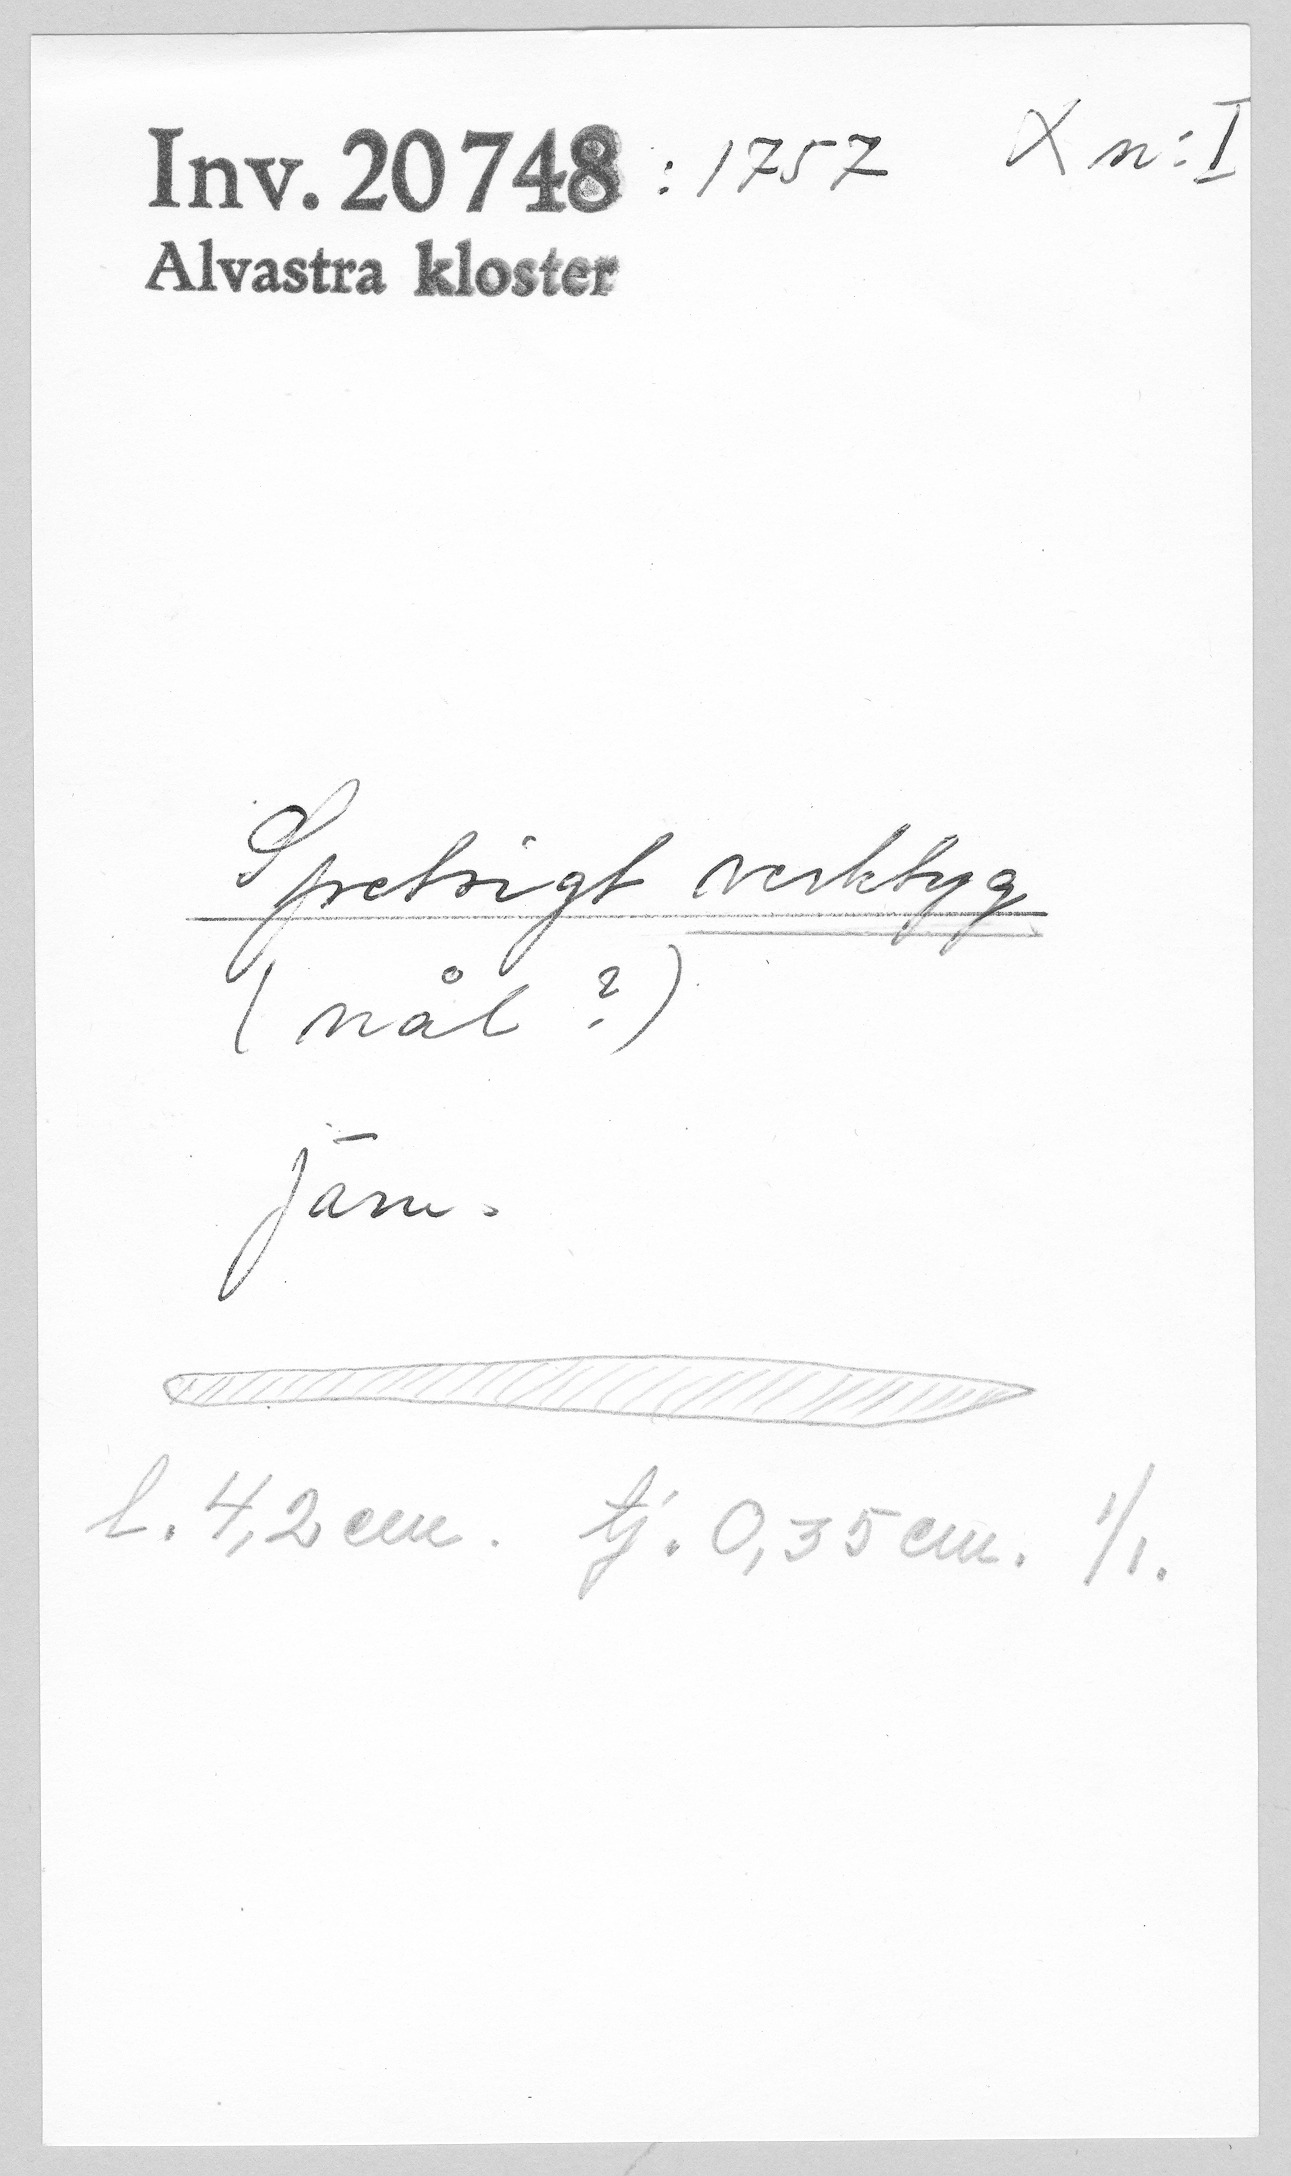 Inv. 20748 : 1757 X n:I
Alvastra kloster
Spetsigt verktyg
(nål?)
Järn.
l. 4,2 cm. tj. 0,35 cm. 1/1.